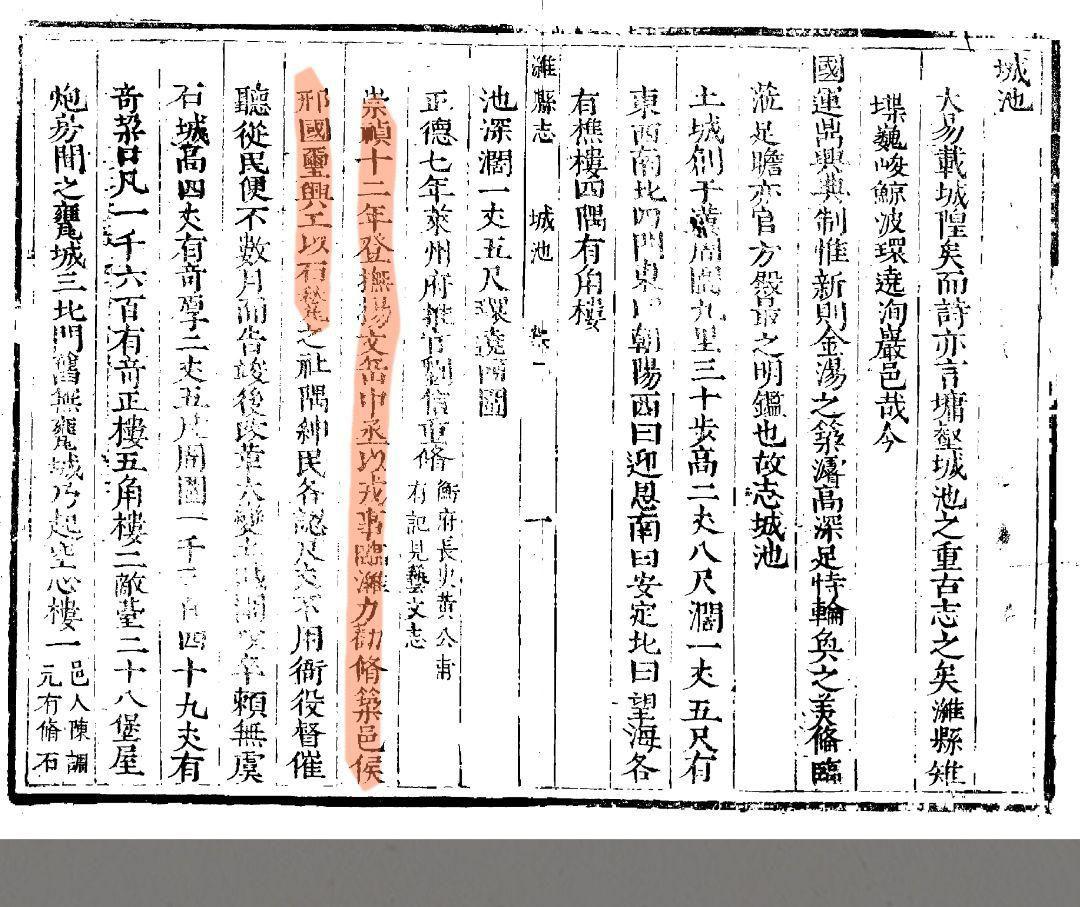 城池
大易載城隍矣而詩亦言墉壑城池之重古志之矣濰縣雉
堞巍峻鯨波環遶洵巖邑哉今
國運鼎興典制惟新則金湯之築濬高深足恃輪奐之美脩臨
蒞足瞻亦官方殿最之明鑑也故志城池
土城創于漢周圍九里三十步高二丈八尺濶一丈五尺有
東西南北四門東曰朝陽西曰迎恩南曰安定北曰望海各
有樵樓四隅有角樓
濰縣志 城池 卷一 一
池深濶一丈五尺環遶四圍
正德七年萊州府推官劉信重脩 衡府長史黃公甫
有記見藝文志
崇禎十二年登撫楊文岳中丞以戎事臨濰力勸脩築邑侯
邢國璽興工以石甃之社隅紳民各認尺丈不用衙役督催
聽從民便不數月而告竣後改革大變土城潤安卒賴無虞
石城高四丈有奇厚二丈五尺周圍一千二百四十九丈有
奇垜口凡一千六百有奇正樓五角樓二敵臺二十八堡屋
炮房間之甕城三北門舊無甕城乃起空心樓一 邑人陳調
元有脩石